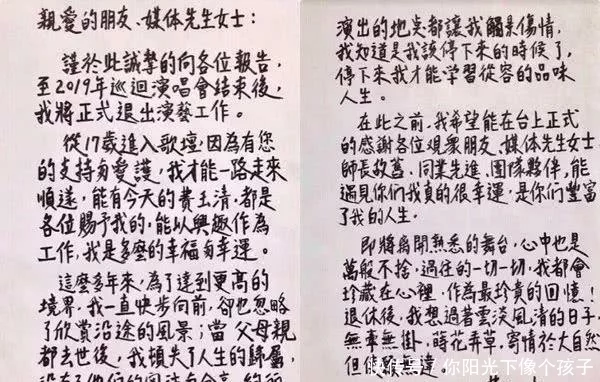 親愛的朋友、媒体先生女士：
謹於此誠摯的向各位報告，
至2019年巡迴演唱會結束後，
我將正式退出演藝工作。
從17歲進入歌壇，因為有您
的支持與愛護，我才能一路走來
順遂，能有今天的費玉清，都是
各位賜予我的，能以興趣作為
工作，我是多麼的幸福與幸運。
這麼多年來，為了達到更高的
境界，我一直快步向前，卻也忽略
了欣賞沿途的風景；當父母親
都去世後，我頓失了人生的歸屬，
演出的地点都讓我觸景傷情，
我知道是我該停下來的時候了，
停下來我才能學習從容的品味
人生。
在此之前，我希望能在台上正式
的感謝各位觀衆朋友、媒体先生女士、
師長故舊、同業先進、團隊夥伴，能
遇見你們我真的很幸運，是你們豐富
了我的人生。
即將離開熟悉的舞台，心中也是
萬般不捨，過往的一切一切，我都會
珍藏在心裡，作為最珍貴的回憶！
退休後，我想過著雲淡風清的日子，
無牽無掛，蒔花弄草，寄情於大自然，
快传号/你阳光下像个孩子